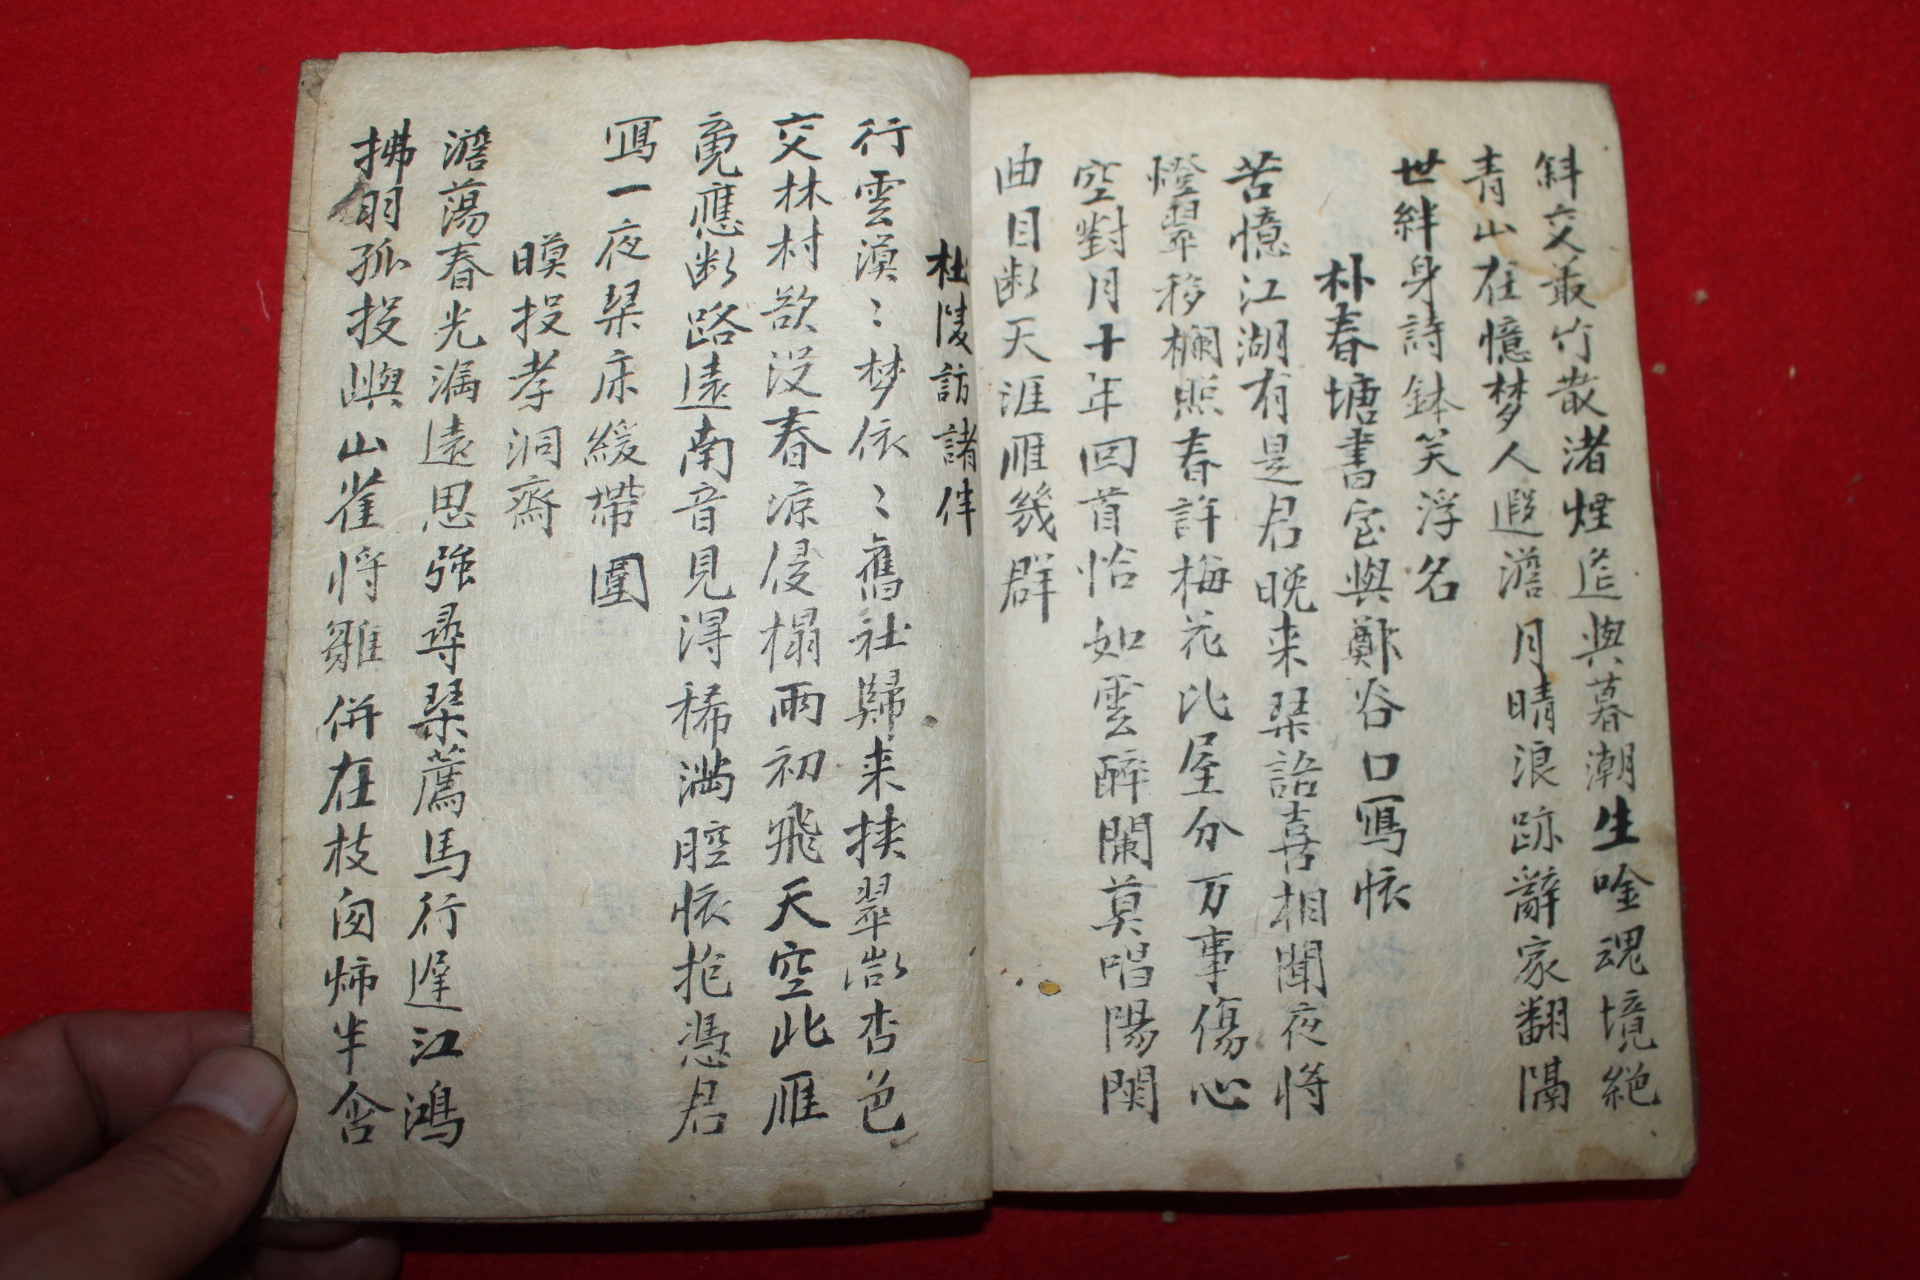 斜交叢竹散渚煙造與暮潮生唫魂境絶
青山在憶梦人遐澹月晴浪跡辭家翻隔
世絆身詩鉢笑浮名
朴春塘書室與鄭谷口寫懷
苦憶江湖有是君晩来琹語喜相聞夜将
燈翠移欄照春許梅花比屋分万事傷心
空對月十年回首恰如雲醉闌莫唱陽関
曲目断天涯雁幾群
杜陵訪諸伴
行雲漠〻梦依〻舊社歸来挟翠嵐杏色
交林村欲没春凉侵榻雨初飛天空此雁
竟應断路遠南音見淂稀満腔懷抱憑君
寫一夜琹床緩帶圍
暯投孝洞齋
澹蕩春光漏遠思強尋琹薦馬行遅江鴻
拂羽孤投嶼山雀将雛併在枝囱柿半含